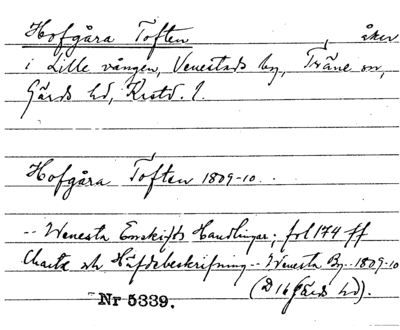 Hofgåra Toften, åker
i Lille vången, Venestads by, Träne sn,
Gärds hd, Krstd. l.
Hofgåra Toften 1809-10.
-- Wenesta Enskifts Handlingar; fol 174 ff
Charta och Häfdebeskrifning -- Wenesta By -- 1809-10
(D 16 Gärds hd).
Nr 5339.